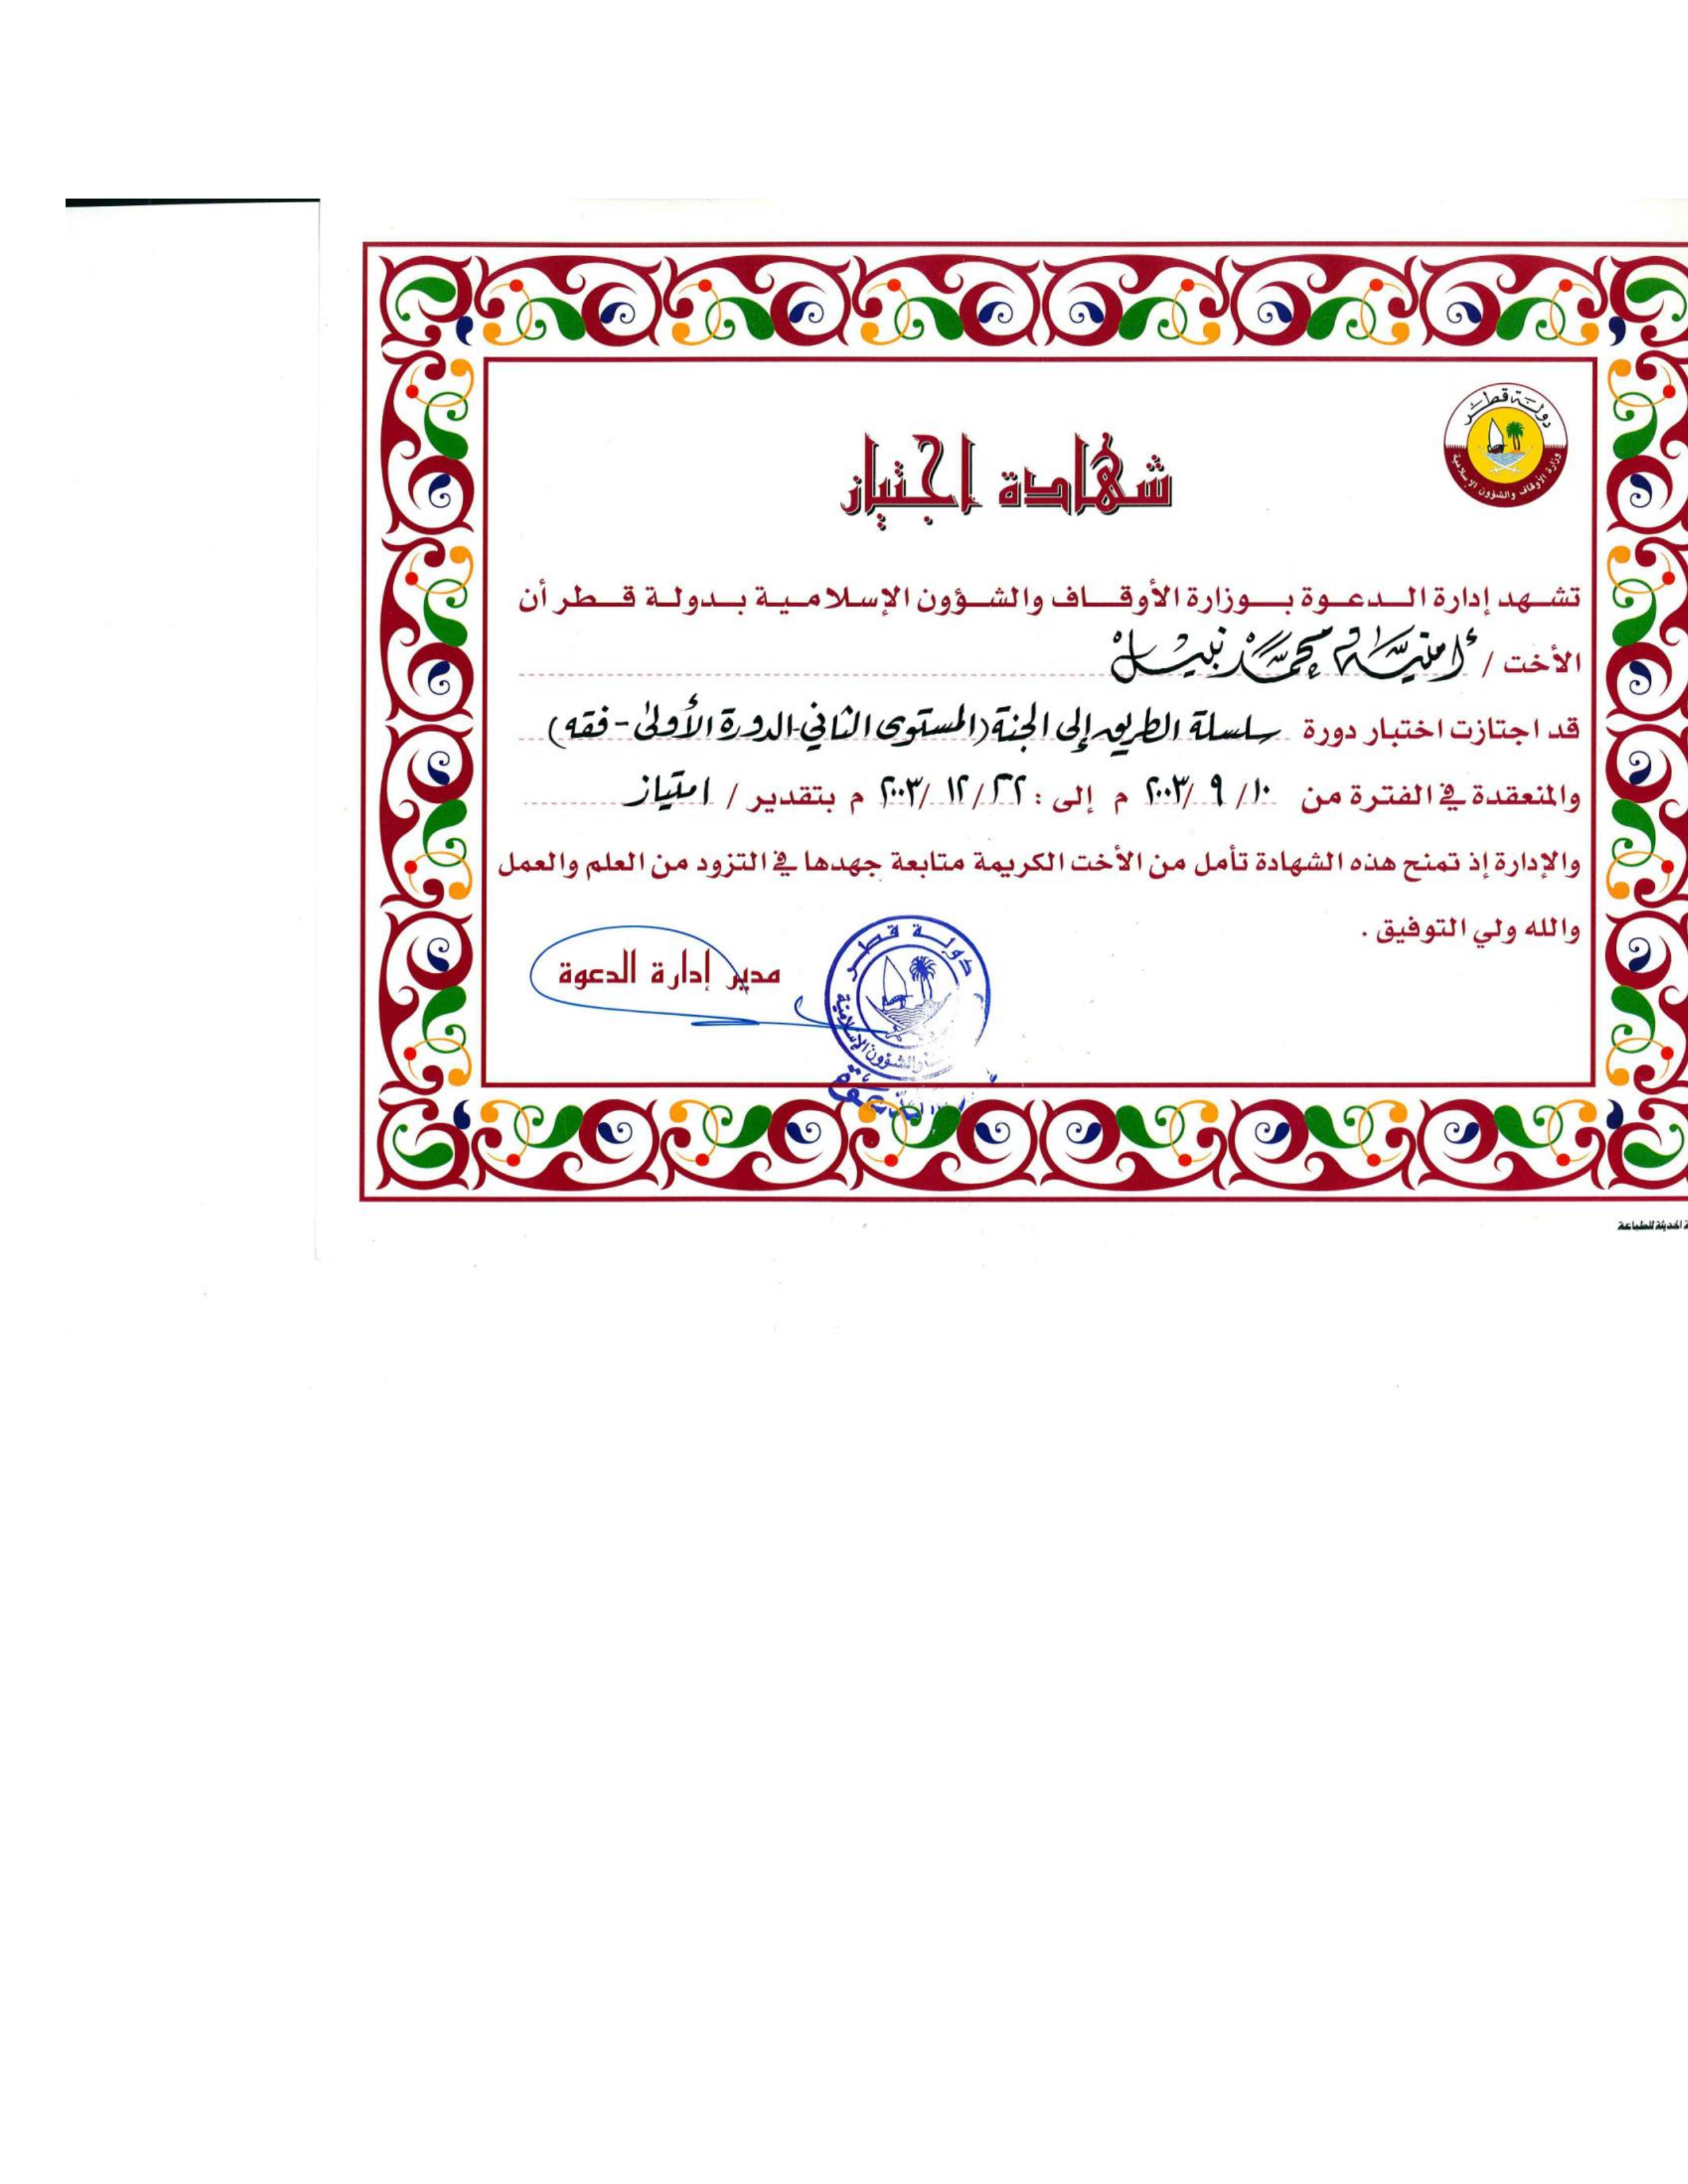 دولة قطر
وزارة الأوقاف والشؤون الإسلامية
شهادة اجتياز
تشهد إدارة الدعوة بوزارة الأوقاف والشؤون الإسلامية بدولة قطر أن
الأخت / أمنية محمد نبيل
قد اجتازت اختبار دورة سلسلة الطريق إلى الجنة (المستوى الثاني-الدورة الأولى-فقه)
والمنعقدة في الفترة من ١٠/ ٩ /٢٠٠٣ م إلى : ٢٢/ ١٢ /٢٠٠٣ م بتقدير / امتياز
والإدارة إذ تمنح هذه الشهادة تأمل من الأخت الكريمة متابعة جهدها في التزود من العلم والعمل
والله ولي التوفيق .
مدير إدارة الدعوة
دولة قطر
والشؤون الإسلامية
الحديثة للطباعة